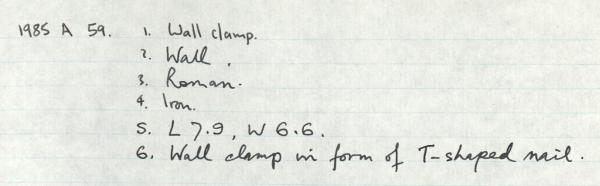 1985 A 59. 1. Wall clamp.
2. Wall.
3. Roman.
4. Iron.
5. L 7.9, W 6.6.
6. Wall clamp in form of T-shaped nail.